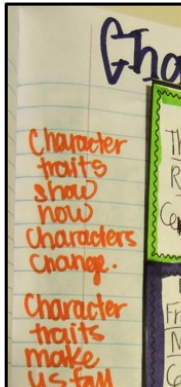 Cha
Character
traits
show
how
characters
change.
Character
traits
make
us fall
Th
R
Ce
Fr
N
Co